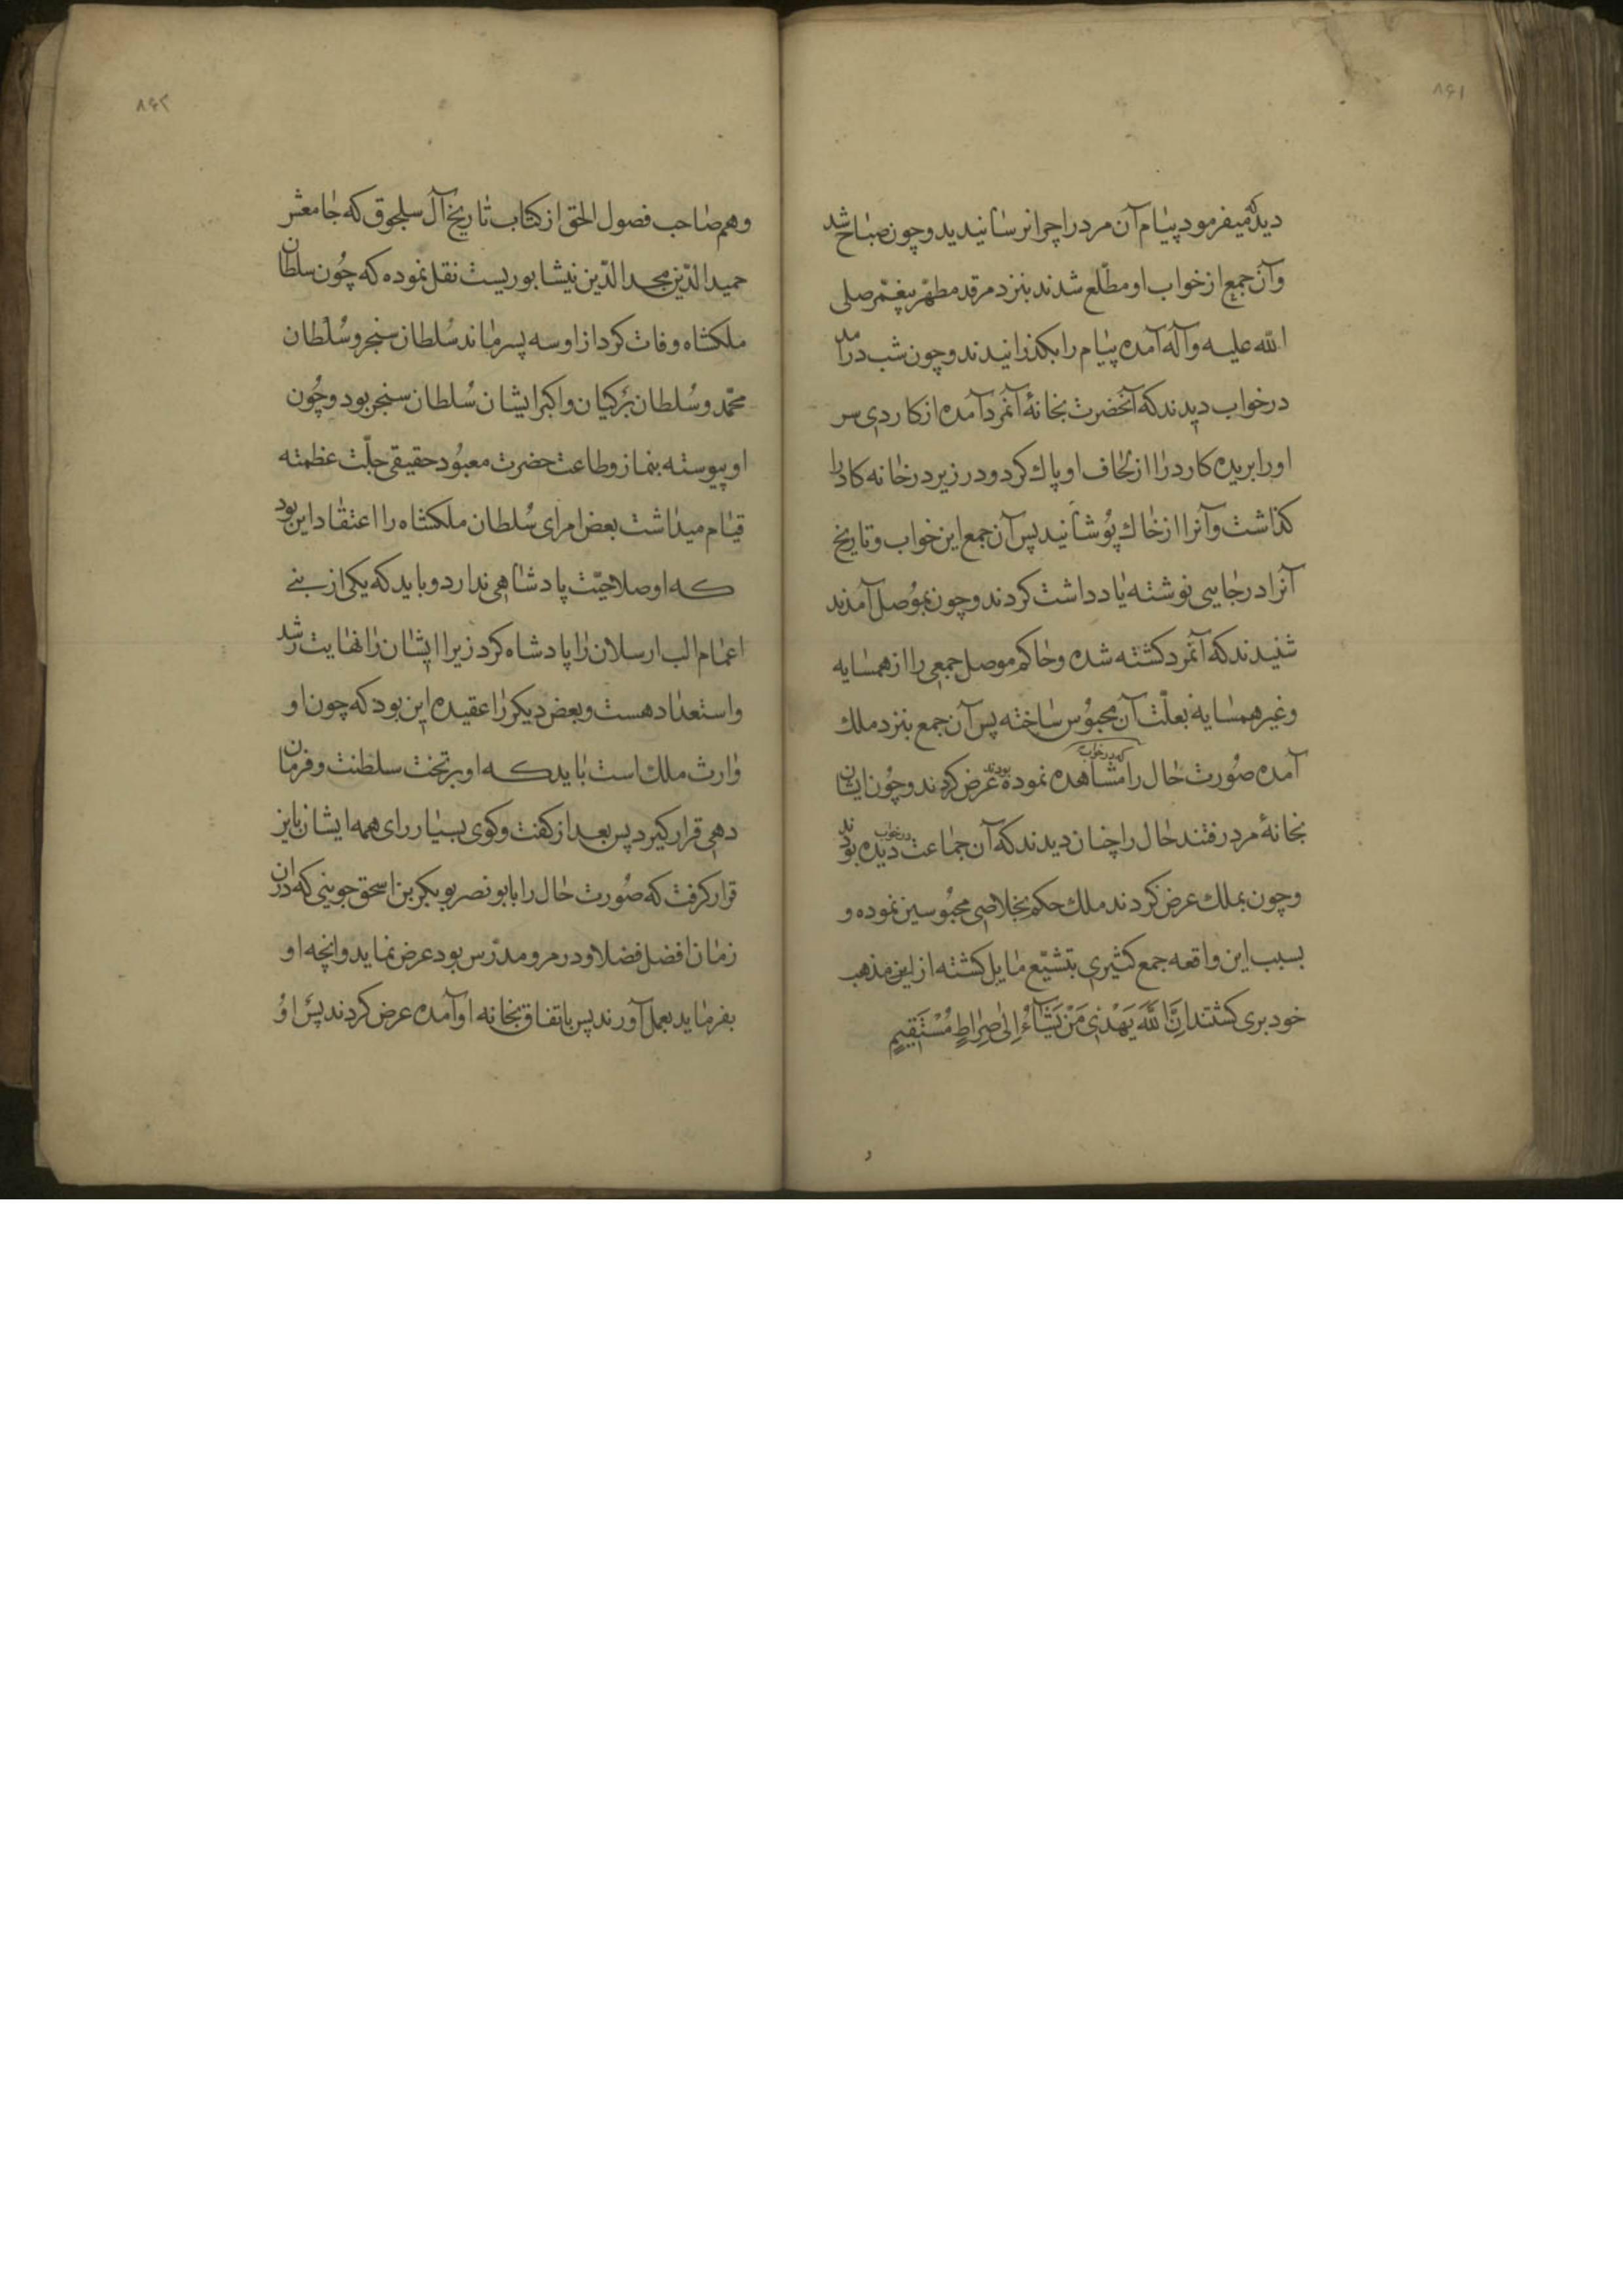 ۸۶۱
دید که میفرمود پیام آن مرد را چرا نرسانیدید و چون صباح شد
و آن جمع از خواب او مطلع شدند بنزد مرقد مطهر پیغمبر صلی
الله علیه و آله آمده پیام را بکذرانیدند و چون شب درآمد
در خواب دیدند که آنحضرت بخانهٔ آنمرد آمده از کاردی سر
او را بریده کارد را از لحاف او پاك کرد و در زیر در خانه کارد را
کذاشت و آنرا از خاك پوشانید پس آن جمع این خواب و تاریخ
آنرا در جایی نوشته یادداشت کردند و چون بموصل آمدند
شنیدند که آنمرد کشته شده و حاکم موصل جمعی را از همسایه
و غیر همسایه بعلّت آن محبوس ساخته پس آن جمع بنزد ملك
آمده صورت حال را که در خواب مشاهده نموده بودند عرض کردند و چون ایشان
بخانهٔ مرد رفتند حال را چنان دیدند که آن جماعت در خواب دیده بودند
و چون بملك عرض کردند ملك حکم بخلاصی محبوسین نموده و
بسبب این واقعه جمع کثیری بتشیّع مایل کشته از این مذهب
خود بری کشتند اِنَّ اللَّهَ یَهْدی مَنْ یَشآءُ اِلٰی صِراطٍ مُسْتَقیمٍ
و
۸۶۲
و هم صاحب فصول الحق از کتاب تاریخ آل سلجوق که جامعش
حمید الدّین مجد الدّین نیشابوریست نقل نموده که چون سلطان
ملکشاه وفات کرد از او سه پسر ماند سُلطان سنجر و سُلطان
محمّد و سُلطان برکیان و اکبر ایشان سُلطان سنجر بود و چُون
او پیوسته بنماز و طاعت حضرت معبُود حقیقی جلّت عظمته
قیام میداشت بعض امرای سُلطان ملکشاه را اعتقاد این بود
که او صلاحیّت پادشاهی ندارد و باید که یکی از بنی
اعمام الب ارسلان را پادشاه کرد زیرا ایشان را نهایت رشد
و استعداد هست و بعض دیکر را عقیده این بود که چون او
وارث ملك است باید که او بر تخت سلطنت و فرمان
دهی قرار کیرد پس بعد از کفت و کوی بسیار رای همه ایشان باین
قرار کرفت که صُورت حال را بابو نصر بو بکر بن اسحق جوینی که در آن
زمان افضل فضلا و در مرو مدرّس بود عرض نماید و انچه او
بفرماید بعمل آورند پس باتفاق بخانه او آمده عرض کردند پس اوُ